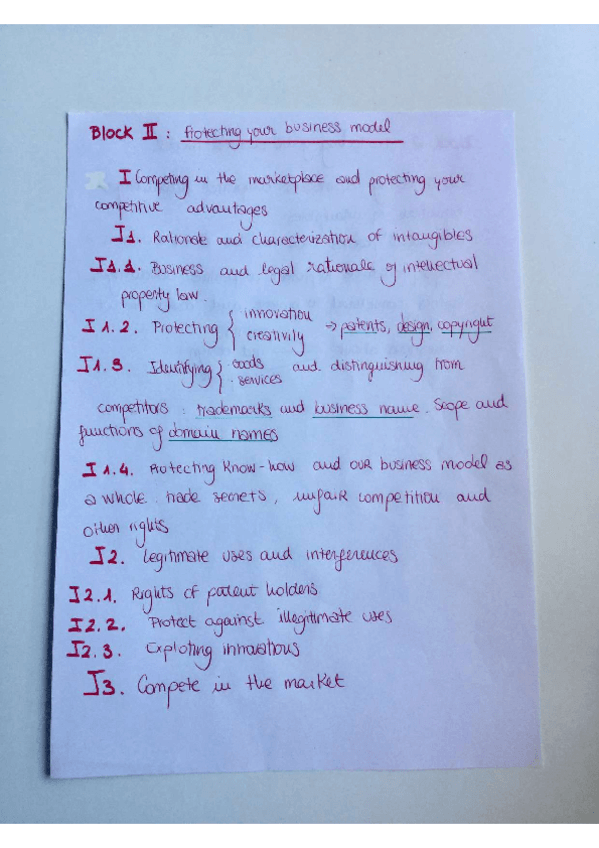 BLOCK II : Protecting your business model
I Competing in the marketplace and protecting your
competitive advantages
I1. Rationale and characterization of intangibles
I1.1. Business and legal rationale of intellectual
property law.
I1.2. Protecting { innovation creativity → patents, design, copyright
I1.3. Identifying { goods · services and distinguishing from
competitors : trademarks and business name. Scope and
functions of domain names
I1.4. Protecting Know-how and our business model as
a whole : trade secrets, unfair competition and
other rights
I2. Legitimate uses and interferences
I2.1. Rights of patent holders
I2.2. Protect against illegitimate uses
I2.3. Exploting innovations
I3. Compete in the market